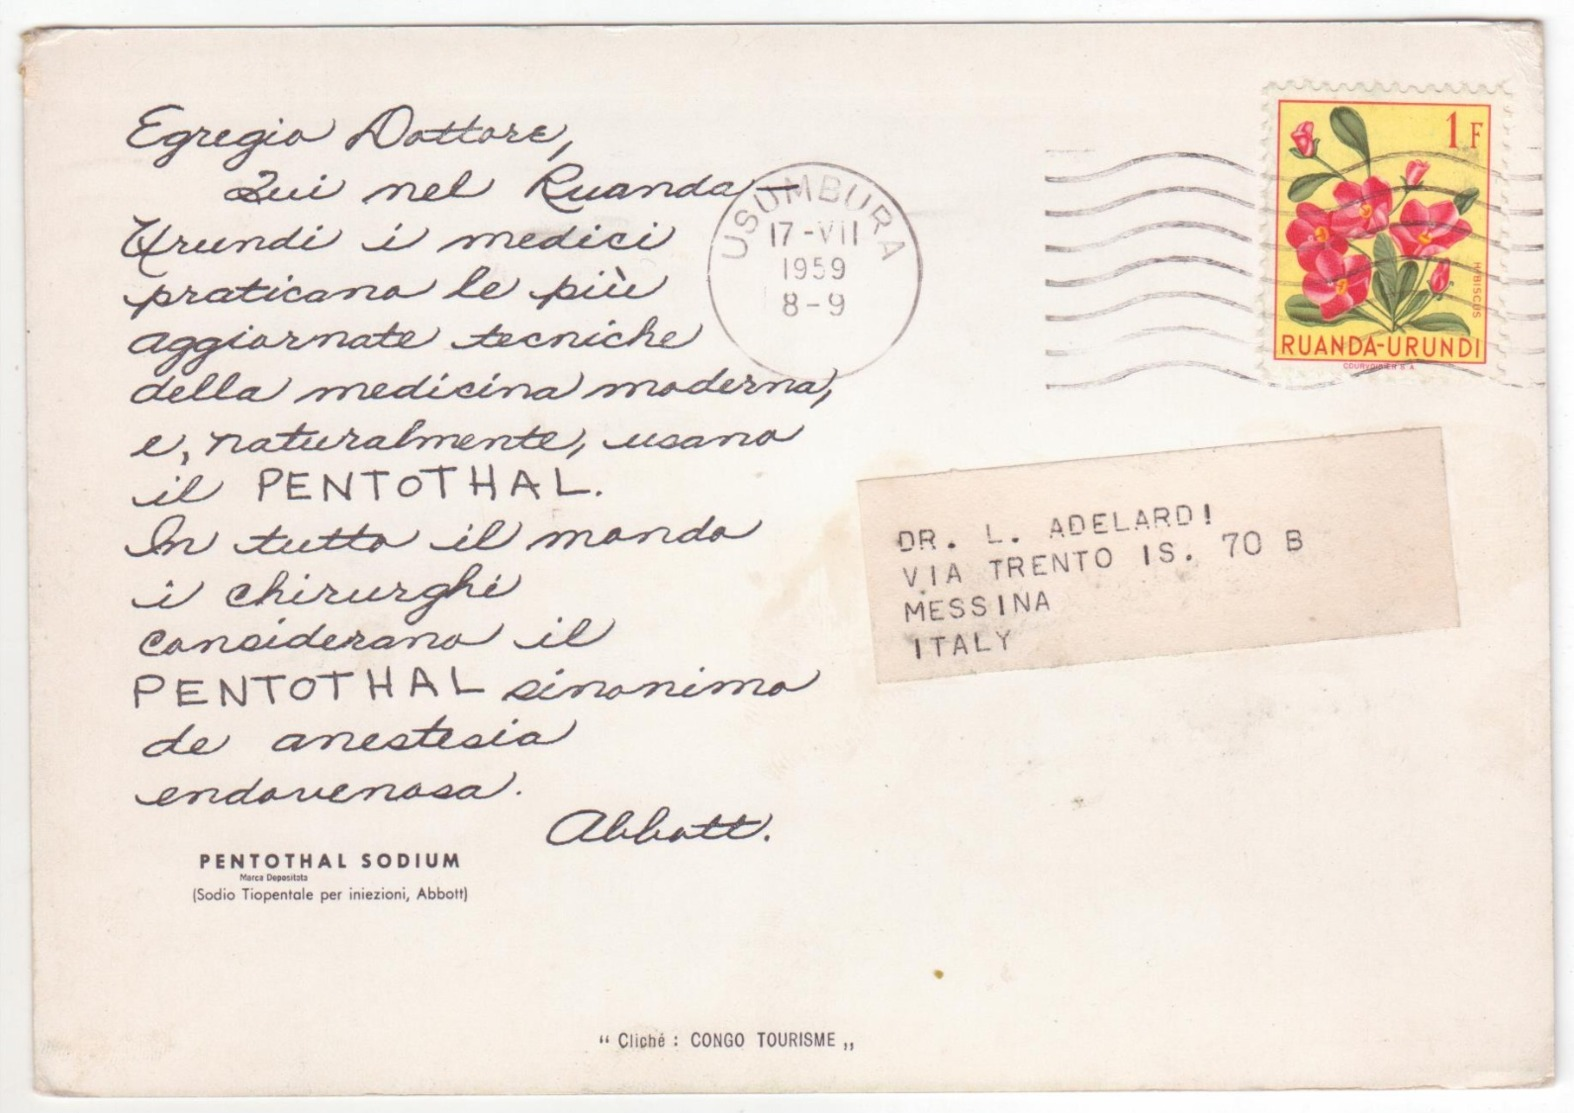 Egregio Dottore,
Qui nel Ruanda-
Urundi i medici
praticano le più
aggiornate tecniche
della medicina moderna,
e, naturalmente, usano
il PENTOTHAL.
In tutto il mondo
i chirurghi
considerano il
PENTOTHAL sinonimo
de anestesia
endovenosa.
Abbott.
PENTOTHAL SODIUM
Marca Depositata
(Sodio Tiopentale per iniezioni, Abbott)
USUMBURA
17-VII
1959
8-9
1 F
HIBISCUS
RUANDA-URUNDI
COURVOISIER S.A.
DR. L. ADELARDI
VIA TRENTO IS. 70 B
MESSINA
ITALY
“ Cliché : CONGO TOURISME „